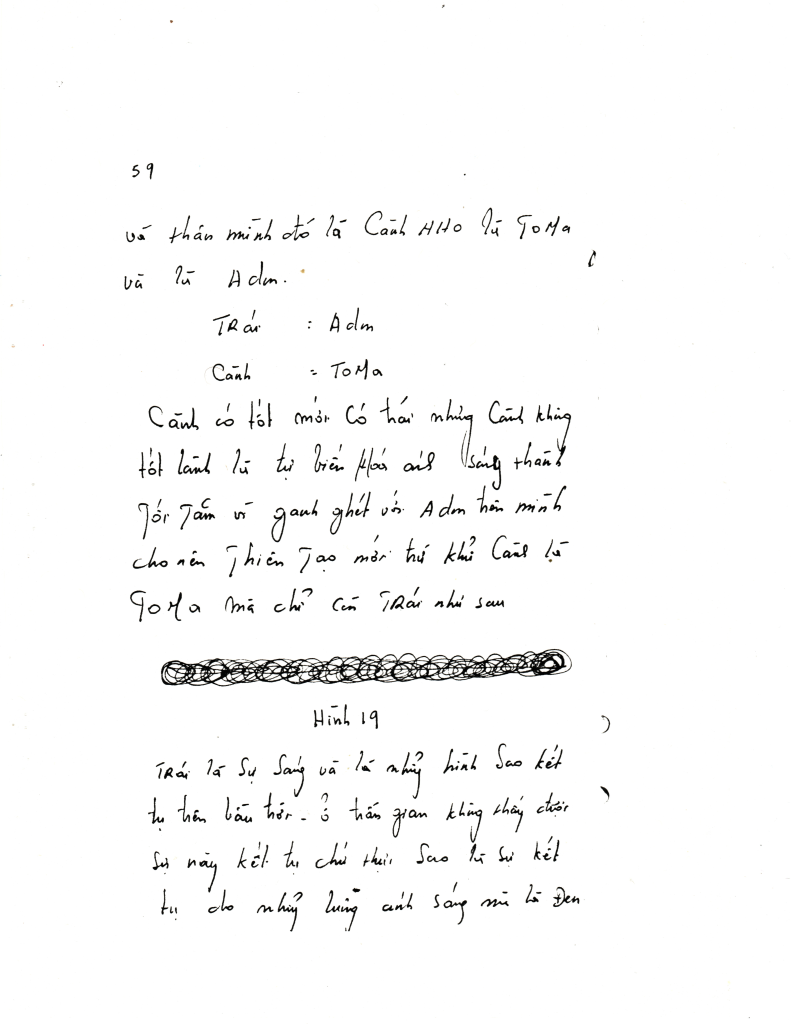 59
về thân mình đó là Cành NHO là TOMa
và là Adm.
TRái : Adm
Cành = TOMa
Cành có tốt mới Có trái nhưng Cành không
tốt lành là tự biến Hóa ánh sáng thành
Tối Tăm vì ganh ghét với Adm trên mình
cho nên Thiên Tạo mới trừ khử Cành là
TOMa mà chỉ còn TRái như sau
Hình 19
TRái là Sự Sáng và là những hình Sao kết
tụ trên bầu trời - ở trần gian không thấy được
Sự này kết tụ chứ thực Sao là Sự kết
tụ do những luồng ánh sáng mà là Đen